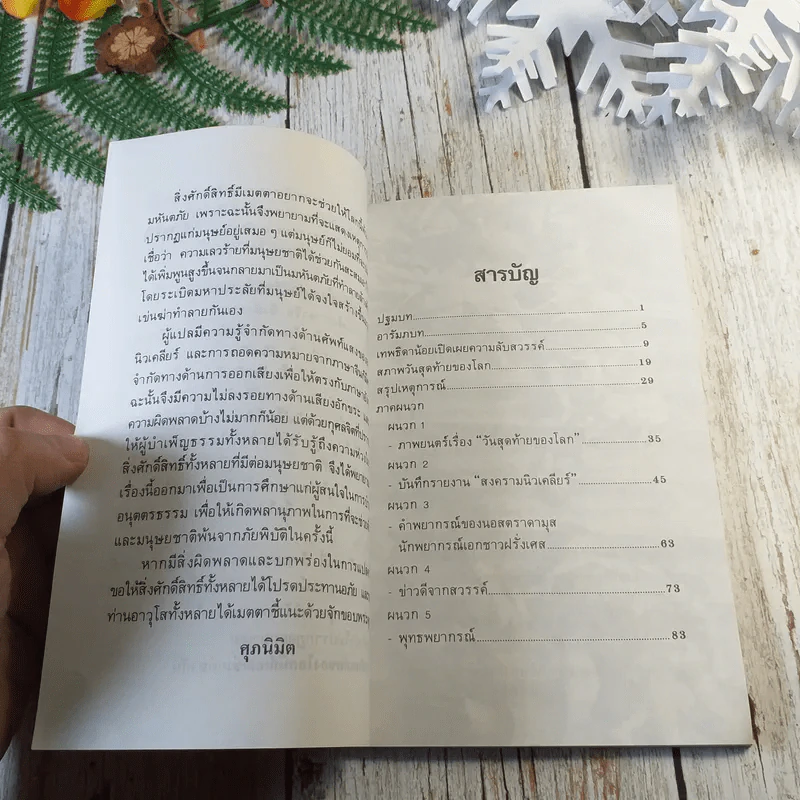 สิ่งศักดิ์สิทธิ์มีเมตตาอยากจะช่วยให้
มหันตภัย เพราะฉะนั้นจึงพยายามที่จะแสดง
ปรากฏแก่มนุษย์อยู่เสมอ ๆ แต่มนุษย์ก็ไม่ยอม
เชื่อว่า ความเลวร้ายที่มนุษยชาติได้ช่วยกัน
ได้เพิ่มพูนสูงขึ้นจนกลายมาเป็นมหันตภัยที่ทำลาย
โดยระเบิดมหาประลัยที่มนุษย์ได้จงใจสร้างขึ้น
เข่นฆ่าทำลายกันเอง
ผู้แปลมีความรู้จำกัดทางด้านศัพท์
นิวเคลียร์ และการถอดความหมายจากภาษา
จำกัดทางด้านการออกเสียงเพื่อให้ตรงกับภาษา
ฉะนั้นจึงมีความไม่ลงรอยทางด้านเสียงอักขระ
ความผิดพลาดบ้างไม่มากก็น้อย แต่ด้วยกุศลจิตที่
ให้ผู้บำเพ็ญธรรมทั้งหลายได้รับรู้ถึงความ
สิ่งศักดิ์สิทธิ์ทั้งหลายที่มีต่อมนุษยชาติ จึงได้
เรื่องนี้ออกมาเพื่อเป็นการศึกษาแก่ผู้สนใจในการ
อนุตตรธรรม เพื่อให้เกิดพลานุภาพในการที่จะช่วย
และมนุษยชาติพ้นจากภัยพิบัติในครั้งนี้
หากมีสิ่งผิดพลาดและบกพร่องในการ
ขอให้สิ่งศักดิ์สิทธิ์ทั้งหลายได้โปรดประทานอภัย และ
ท่านอาวุโสทั้งหลายได้เมตตาชี้แนะด้วยจักขอบ
ศุภนิมิต
สารบัญ
ปฐมบท 1
อารัมภบท 5
เทพธิดาน้อยเปิดเผยความลับสวรรค์ 9
สภาพวันสุดท้ายของโลก 19
สรุปเหตุการณ์ 29
ภาคผนวก
ผนวก 1
- ภาพยนตร์เรื่อง "วันสุดท้ายของโลก" 35
ผนวก 2
- บันทึกรายงาน "สงครามนิวเคลียร์" 45
ผนวก 3
- คำพยากรณ์ของนอสตราดามุส
นักพยากรณ์เอกชาวฝรั่งเศส 63
ผนวก 4
- ข่าวดีจากสวรรค์ 73
ผนวก 5
- พุทธพยากรณ์ 83